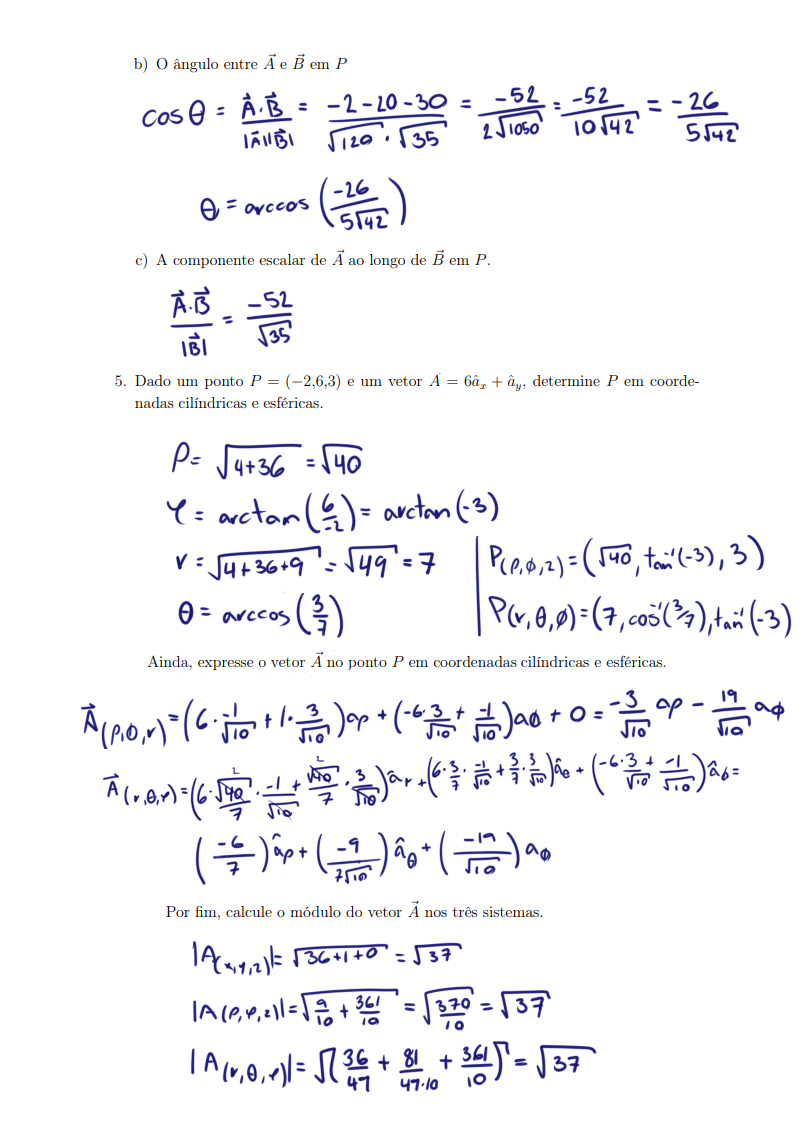 b) O ângulo entre A⃗ e B⃗ em P
cos θ = A⃗·B⃗ / |A⃗||B⃗| = -2-20-30 / √120 · √35 = -52 / 2√1050 = -52 / 10√42 = -26 / 5√42
θ = arccos (-26 / 5√42)
c) A componente escalar de A⃗ ao longo de B⃗ em P.
A⃗·B⃗ / |B⃗| = -52 / √35
5. Dado um ponto P = (−2,6,3) e um vetor A = 6âₓ + âᵧ, determine P em coorde-
nadas cilíndricas e esféricas.
ρ = √4+36 = √40
φ = arctan(6/-2) = arctan(-3)
r = √4+36+9 = √49 = 7
θ = arccos(3/7)
P(ρ,ϕ,z) = (√40, tan⁻¹(-3), 3)
P(r,θ,ϕ) = (7, cos⁻¹(3/7), tan⁻¹(-3)
Ainda, expresse o vetor A⃗ no ponto P em coordenadas cilíndricas e esféricas.
A⃗(ρ,ϕ,r) = (6·-1/√10 + 1·3/√10)aρ + (-6·3/√10 + -1/√10)aϕ + 0 = -3/√10 aρ - 19/√10 aϕ
A⃗(r,θ,φ) = (6·√40/7 · -1/√10 + √40/7 · 3/√10)âr + (6·3/7 · -1/√10 + 3/7 · 3/√10)âθ + (-6·3/√10 + -1/√10)âϕ =
(-6/7)âρ + (-9/7√10)âθ + (-19/√10)aϕ
Por fim, calcule o módulo do vetor A⃗ nos três sistemas.
|A(x,y,z)| = √36+1+0 = √37
|A(ρ,φ,z)| = √9/10 + 361/10 = √370/10 = √37
|A(r,θ,φ)| = √(36/47 + 81/47·10 + 361/10) = √37